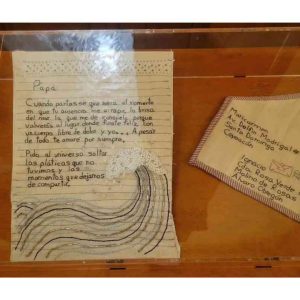 Papá
Cuando partas se que será el momento
en que tu ausencia me arrope, la brisa
del mar la que me de consuelo, porque
volverás al lugar donde fuiste feliz, con
tu cuerpo libre de dolor y yo... A pesar
de todo te amaré por siempre.
Pido al universo soltar
las pláticas que no
tuvimos y los
momentos que dejamos
de compartir.
Mercurorum
A. Delfín Madrigal
Santo Domingo
Coyoacán
Ignacio
Rosa Verde
Molino de Rosas
Álvaro Obregón